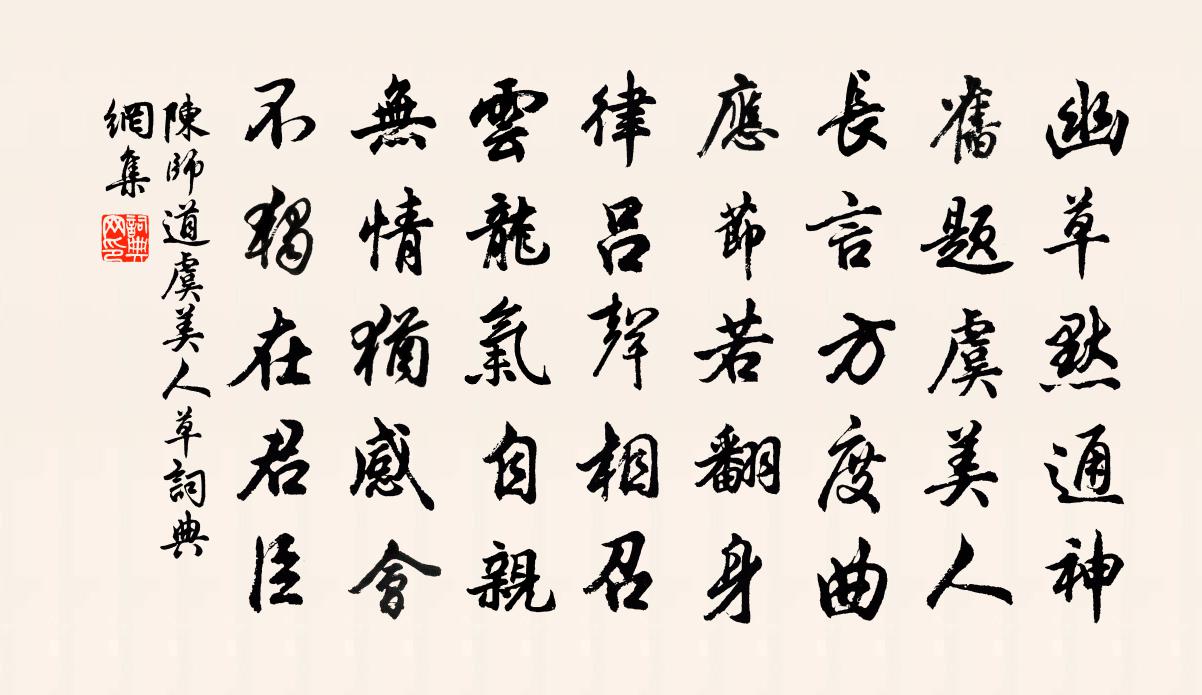 幽草黙通神
舊題虞美人
長言方度曲
應節若翻身
律呂聲相召
雲龍氣自親
無情猶感會
不獨在君臣
陳師道虞美人草詞典
網集
詞典
网印